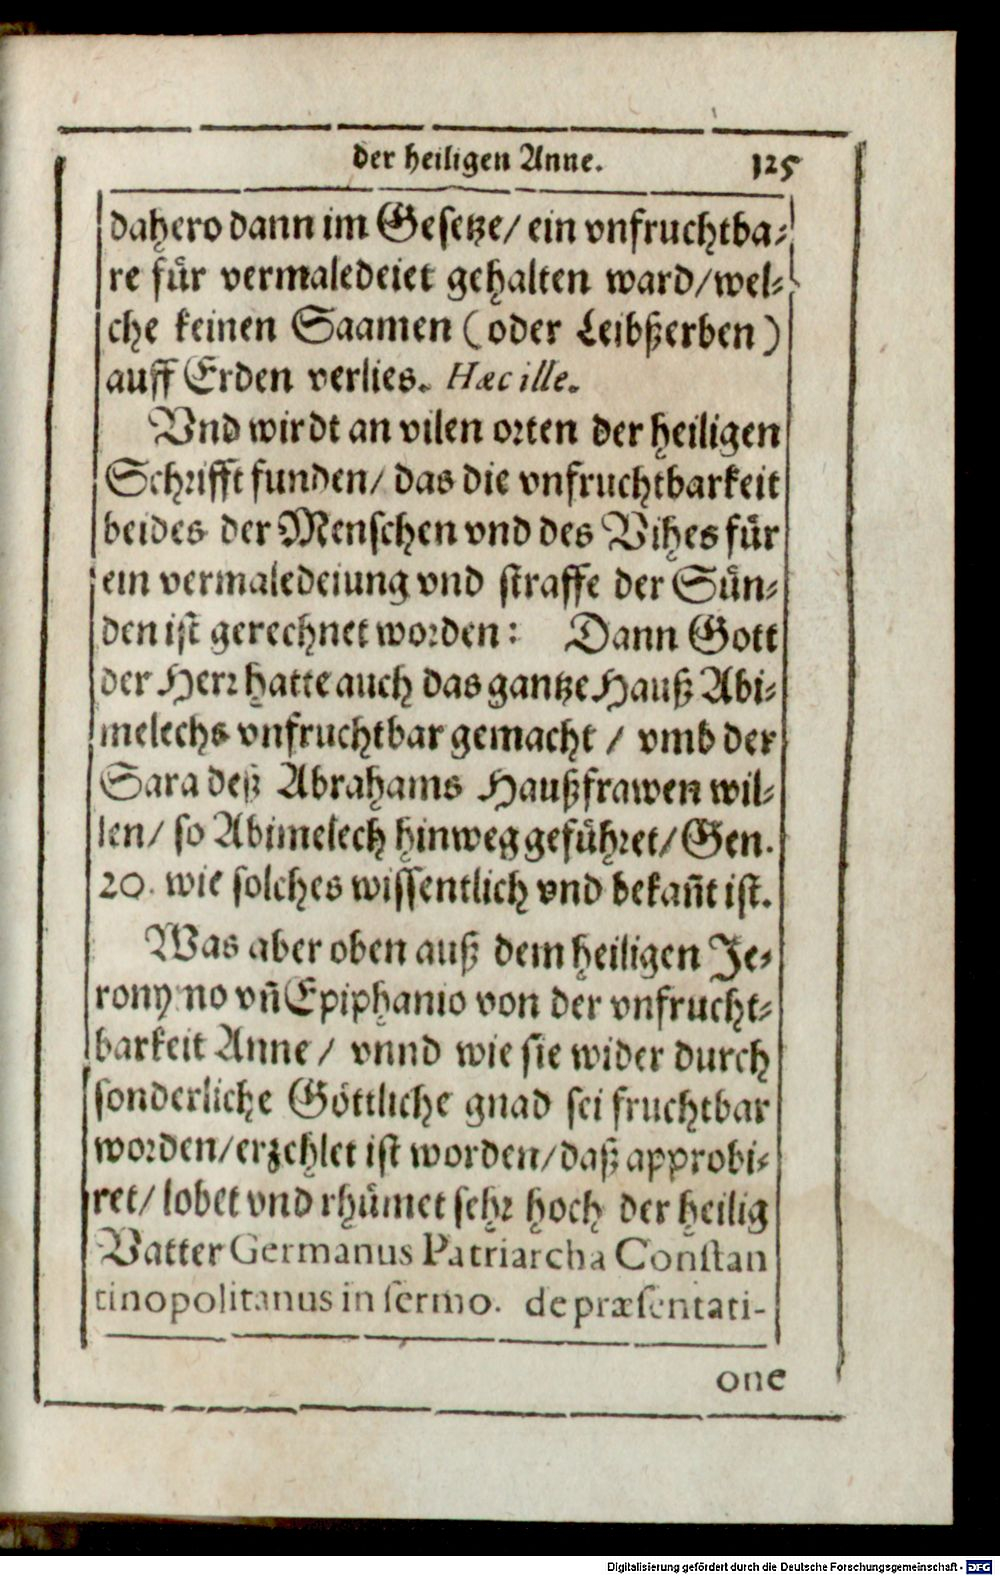 der heiligen Anne. 125
dahero dann im Gesetze/ ein vnfruchtba-
re für vermaledeiet gehalten ward/wel-
che keinen Saamen (oder Leibßerben)
auff Erden verlies. Hæc ille.
Vnd wirdt an vilen orten der heiligen
Schrifft funden/ das die vnfruchtbarkeit
beides der Menschen vnd des Vihes für
ein vermaledeiung vnd straffe der Sün-
den ist gerechnet worden: Dann Gott
der Herr hatte auch das gantze Hauß Abi-
melechs vnfruchtbar gemacht / vmb der
Sara deß Abrahams Haußfrawen wil-
len/ so Abimelech hinweg geführet/ Gen.
20. wie solches wissentlich vnd bekañt ist.
Was aber oben auß dem heiligen Je-
ronymo vñ Epiphanio von der vnfrucht-
barkeit Anne / vnnd wie sie wider durch
sonderliche Göttliche gnad sei fruchtbar
worden/erzehlet ist worden/daß approbi-
ret/ lobet vnd rhümet sehr hoch der heilig
Vatter Germanus Patriarcha Constan
tinopolitanus in sermo. de præsentati-
one
Digitalisierung gefördert durch die Deutsche Forschungsgemeinschaft - DFG